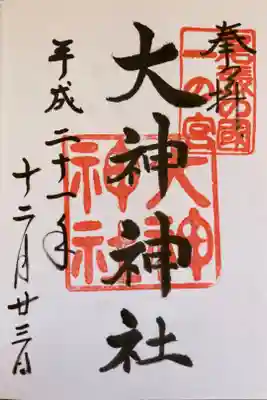 奉拝
尾張の國
一の宮
大神神社
大神
神社
平成二十一年
十二月廿三日